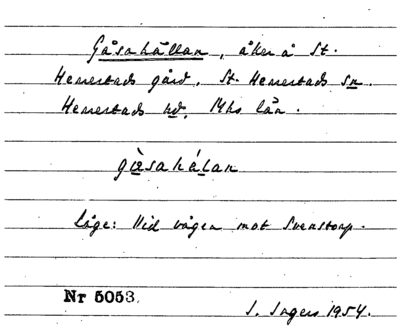 Gåsahällan, åker å St.
Herrestads gård, St. Herrestads sn.
Herrestads hd, Mhs län.
gæ̀sahálan
Läge: Vid vägen mot Svenstorp.
Nr 5053.
I. Ingers 1954.